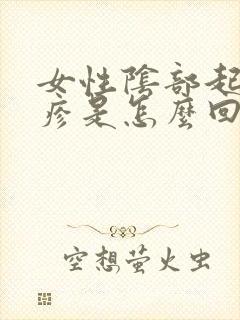 女性陰部起
疹是怎麼回
空想萤火虫